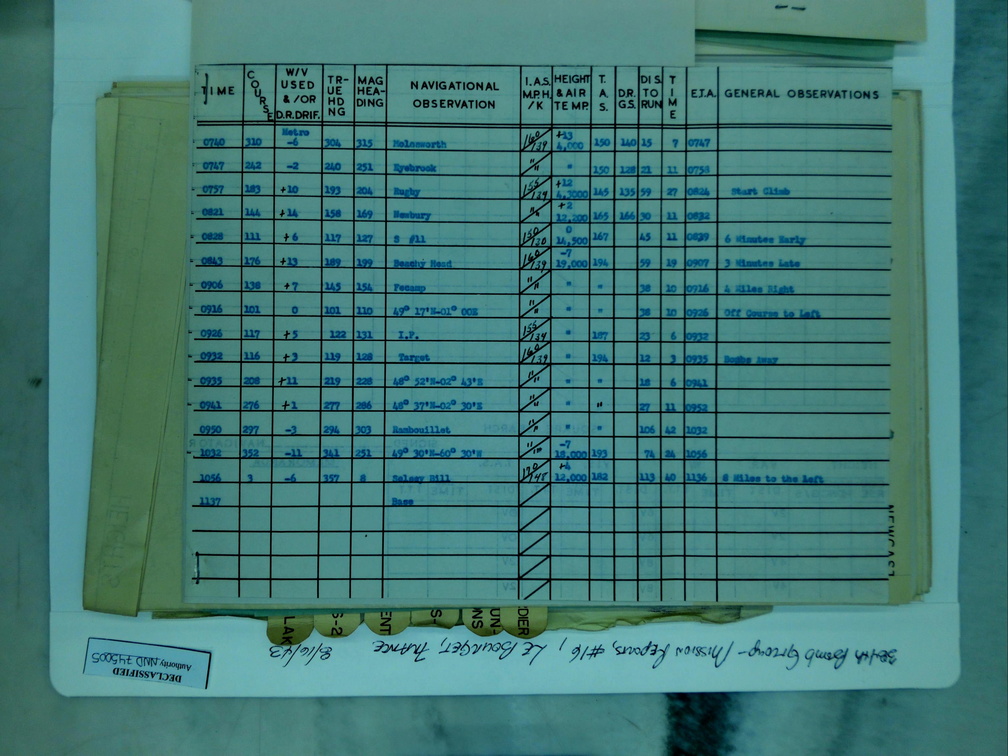 TIME COURSE W/V USED & /OR D.R.DRIF. TRUE HDNG MAG HEADING NAVIGATIONAL OBSERVATION I.A.S. M.P.H. /K HEIGHT & AIR TEMP. T.A.S. D.R. G.S. DIS. TO RUN TIME E.T.A. GENERAL OBSERVATIONS
0740 310 Metro -6 304 315 Molesworth 160/139 +13 4,000 150 140 15 7 0747
0747 242 -2 240 251 Eyebrook " " 150 128 21 11 0758
0757 183 +10 193 204 Rugby 155/134 +12 145 135 59 27 0824 Start Climb
0821 144 +14 158 169 Newbury " " +2 12,200 165 166 30 11 0832
0828 111 +6 117 127 S #11 150/130 0 14,500 167 45 11 0839 6 Minutes Early
0843 176 +13 189 199 Beachy Head 160/139 -7 19,000 194 59 19 0907 3 Minutes Late
0906 138 +7 145 154 Fecamp " " " " 38 10 0916 4 Miles Right
0916 101 0 101 110 49° 17'N-01° 00E " " " " 38 10 0926 Off Course to Left
0926 117 +5 122 131 I.P. 155/134 " 187 23 6 0932
0932 116 +3 119 128 Target 160/139 " 194 12 3 0935 Bombs Away
0935 208 +11 219 228 48° 52'N-02° 43'E " " " " 18 6 0941
0941 276 +1 277 286 48° 37'N-02° 30'E " " " " 27 11 0952
0950 297 -3 294 303 Rambouillet " " " " 106 42 1032
1032 352 -11 341 251 49° 30'N-60° 30'E " " -7 18,000 193 74 24 1056
1056 3 -6 357 8 Selsey Bill 170/148 +4 12,000 182 113 40 1136 8 Miles to the Left
1137 Base
LAK
S-2
ENT
S-
UN-
NS
DIER
384th Bomb Group - Mission Reports, #16, Le Bourget, France 8/16/43
DECLASSIFIED
Authority NND 745005